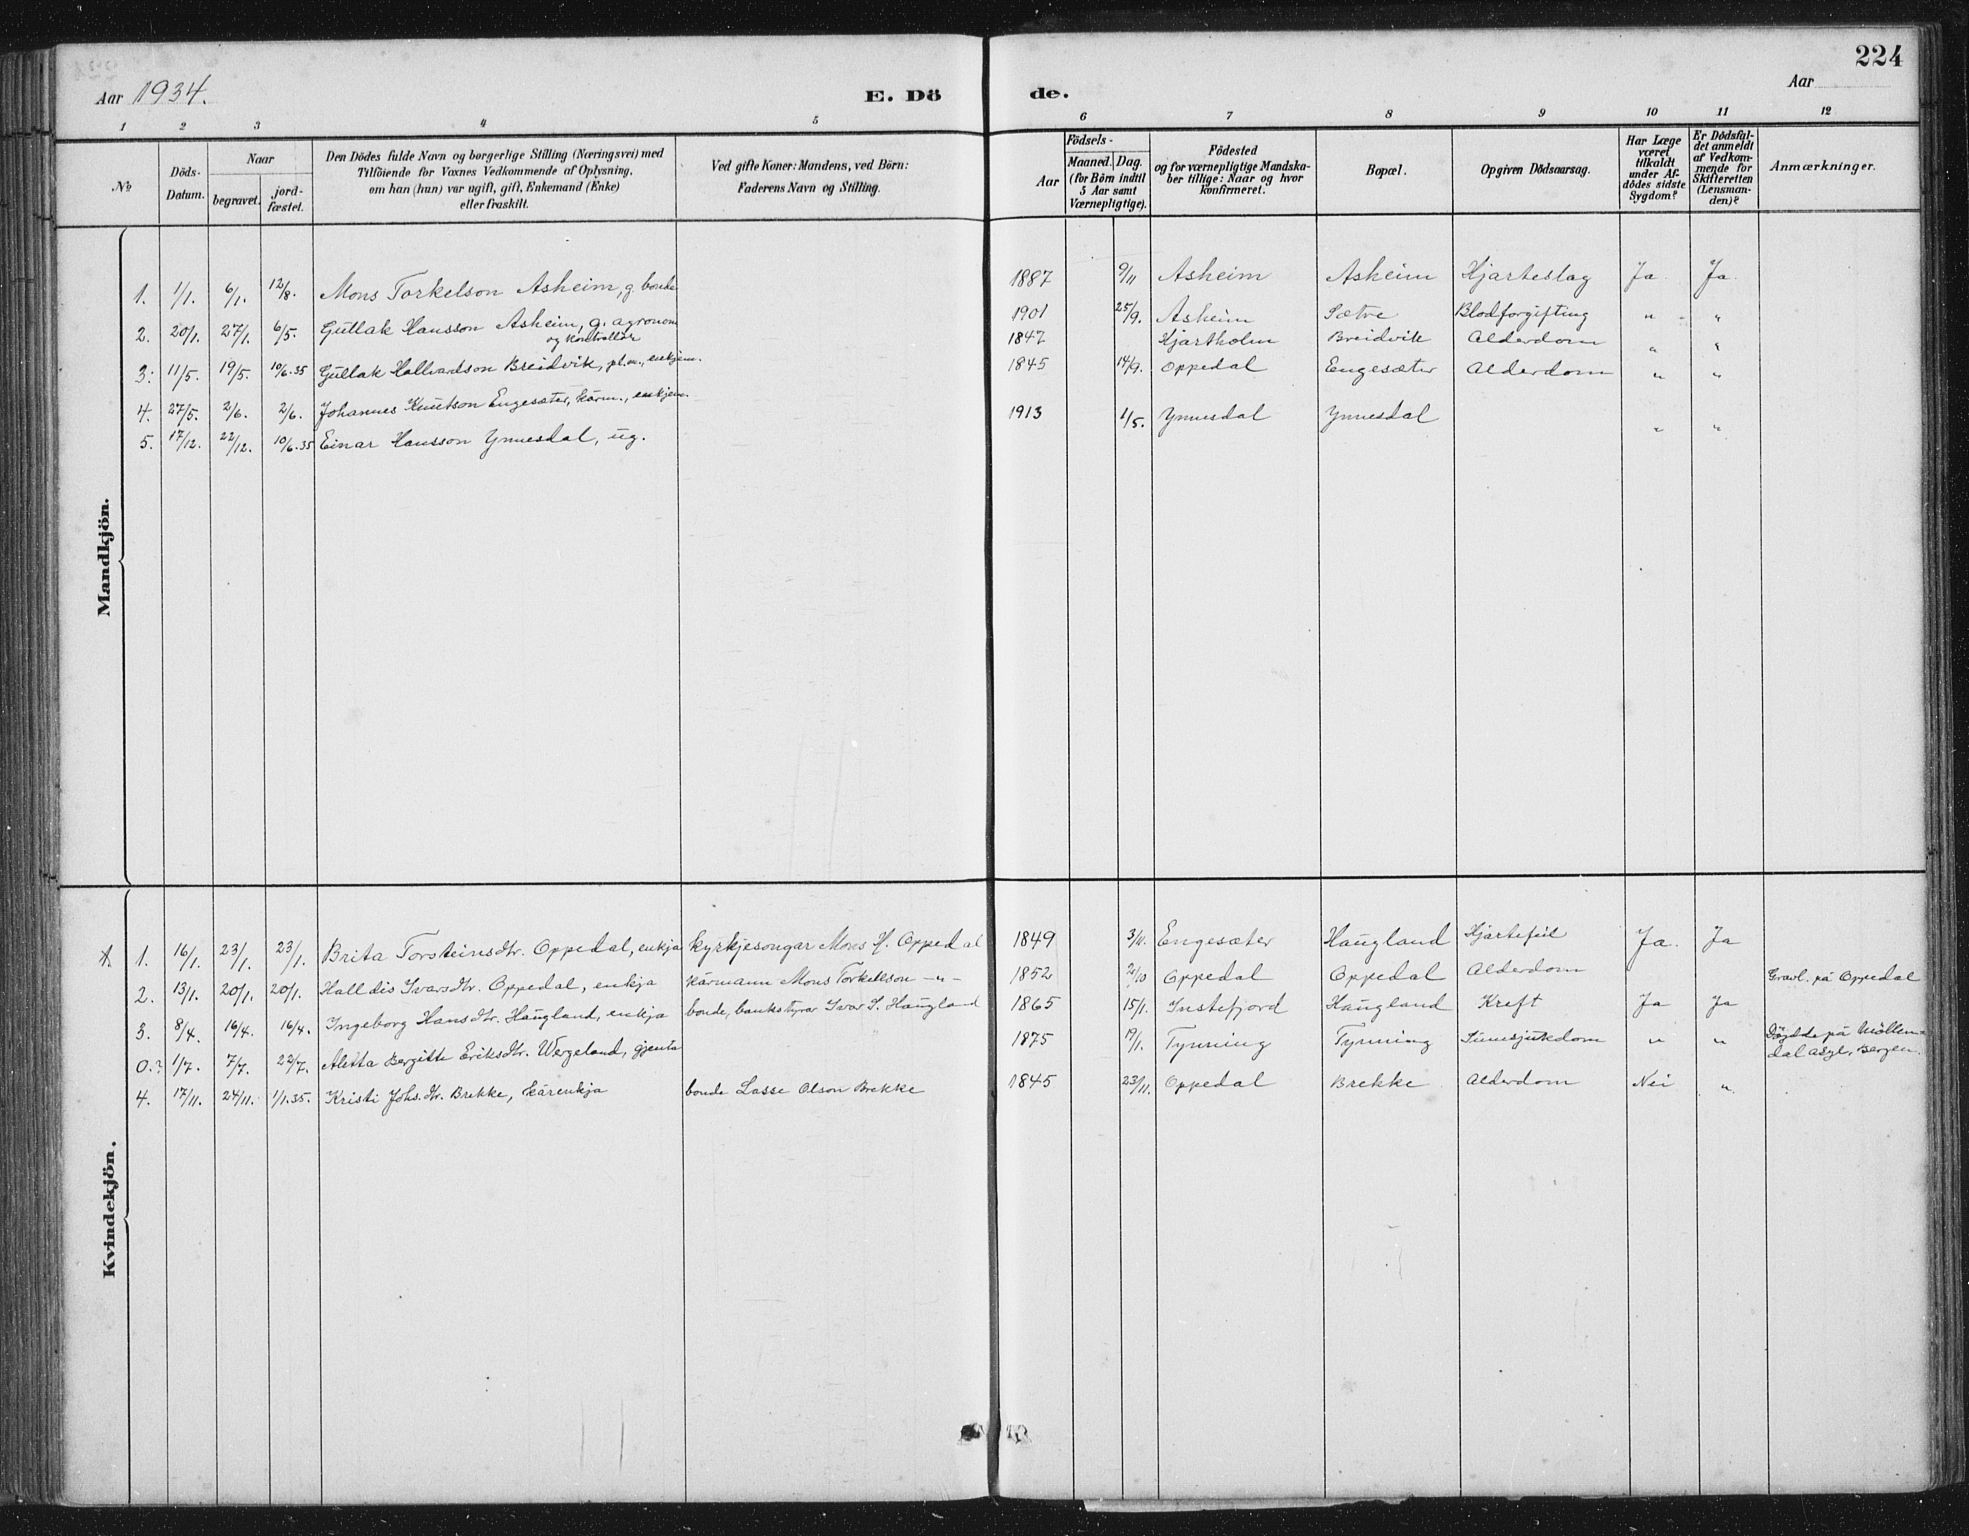 224
Aar 1934.
E. Dö
de.
Aar
1 2 3 4 5 6 7 8 9 10 11 12
№
Döds-Datum.
Naar
begravet.
jord-fæstet.
Den Dödes fulde Navn og borgerlige Stilling (Næringsvei) med
Tilföiende for Voxnes Vedkommende af Oplysning,
om han (hun) var ugift, gift, Enkemand (Enke)
eller fraskilt.
Ved gifte Koner: Mandens, ved Börn:
Faderens Navn og Stilling.
Födsels-
Aar
Maaned. Dag.
(for Börn indtil
5 Aar samt
Værnepligtige).
Födested
og for værnepligtige Mandska-
ber tillige: Naar og hvor
konfirmeret.
Bopæl.
Opgiven Dödsaarsag.
Har Læge
været
tilkaldt
under Af-
dödes sidste
Sygdom?
Er Dödsfal-
det anmeldt
af Vedkom-
mende for
Skifteretten
(Lensman-
den)?
Anmærkninger.
Mandkjön.
1. 1/1. 6/1. 12/8. Mons Torkelson Asheim, g. bonde 1887 9/11 Asheim Asheim Hjarteslag Ja Ja
2. 20/1. 27/1. 6/5. Gullak Hansson Asheim, g. agronom 1901 25/9. Asheim Sætre Blodforgifting " "
og kontrollør
3. 11/5. 19/5. 10/6.35 Gullak Hallvardson Breidvik, pl.m., enkjem. 1847 Hjartholm Breidvik Alderdom " "
4. 27/5. 2/6. 2/6. Johannes Knutson Engesæter, kårm., enkjem. 1845 14/9. Oppedal Engesæter Alderdom " "
5. 17/12. 22/12. 10/6.35 Einar Hansson Ynnesdal, ug. 1913 1/5. Ynnesdal Ynnesdal " "
Kvindekjön.
1. 16/1. 23/1. 23/1. Brita Torsteinsdtr. Oppedal, enkja kyrkjesongar Mons H. Oppedal 1849 3/11. Engesæter Haugland Hjartefeil Ja. Ja
2. 13/1. 20/1. 20/1. Halldis Ivarsdtr. Oppedal, enkja kårmann Mons Torkelson -"- 1852 2/10 Oppedal Oppedal Alderdom Gravl. på Oppedal
3. 8/4. 16/4. 16/4. Ingeborg Hansdtr. Haugland, enkja bonde, bankstyrar Ivar I. Haugland 1865 15/1. Instefjord Haugland Kreft Ja Ja
0.? 1/7. 7/7. 22/7. Aletta Bergitte Eriksdtr. Wergeland, gjenta 1875 19/1. Tynning Tynning Sinnsjukdom " " Døydde på Möllen-
dal asyl, Bergen.
4. 17/11. 24/11. 1/1.35. Kristi Johs.dtr. Brekke, kårenkja bonde Lasse Olson Brekke 1845 23/11. Oppedal Brekke Alderdom Nei "